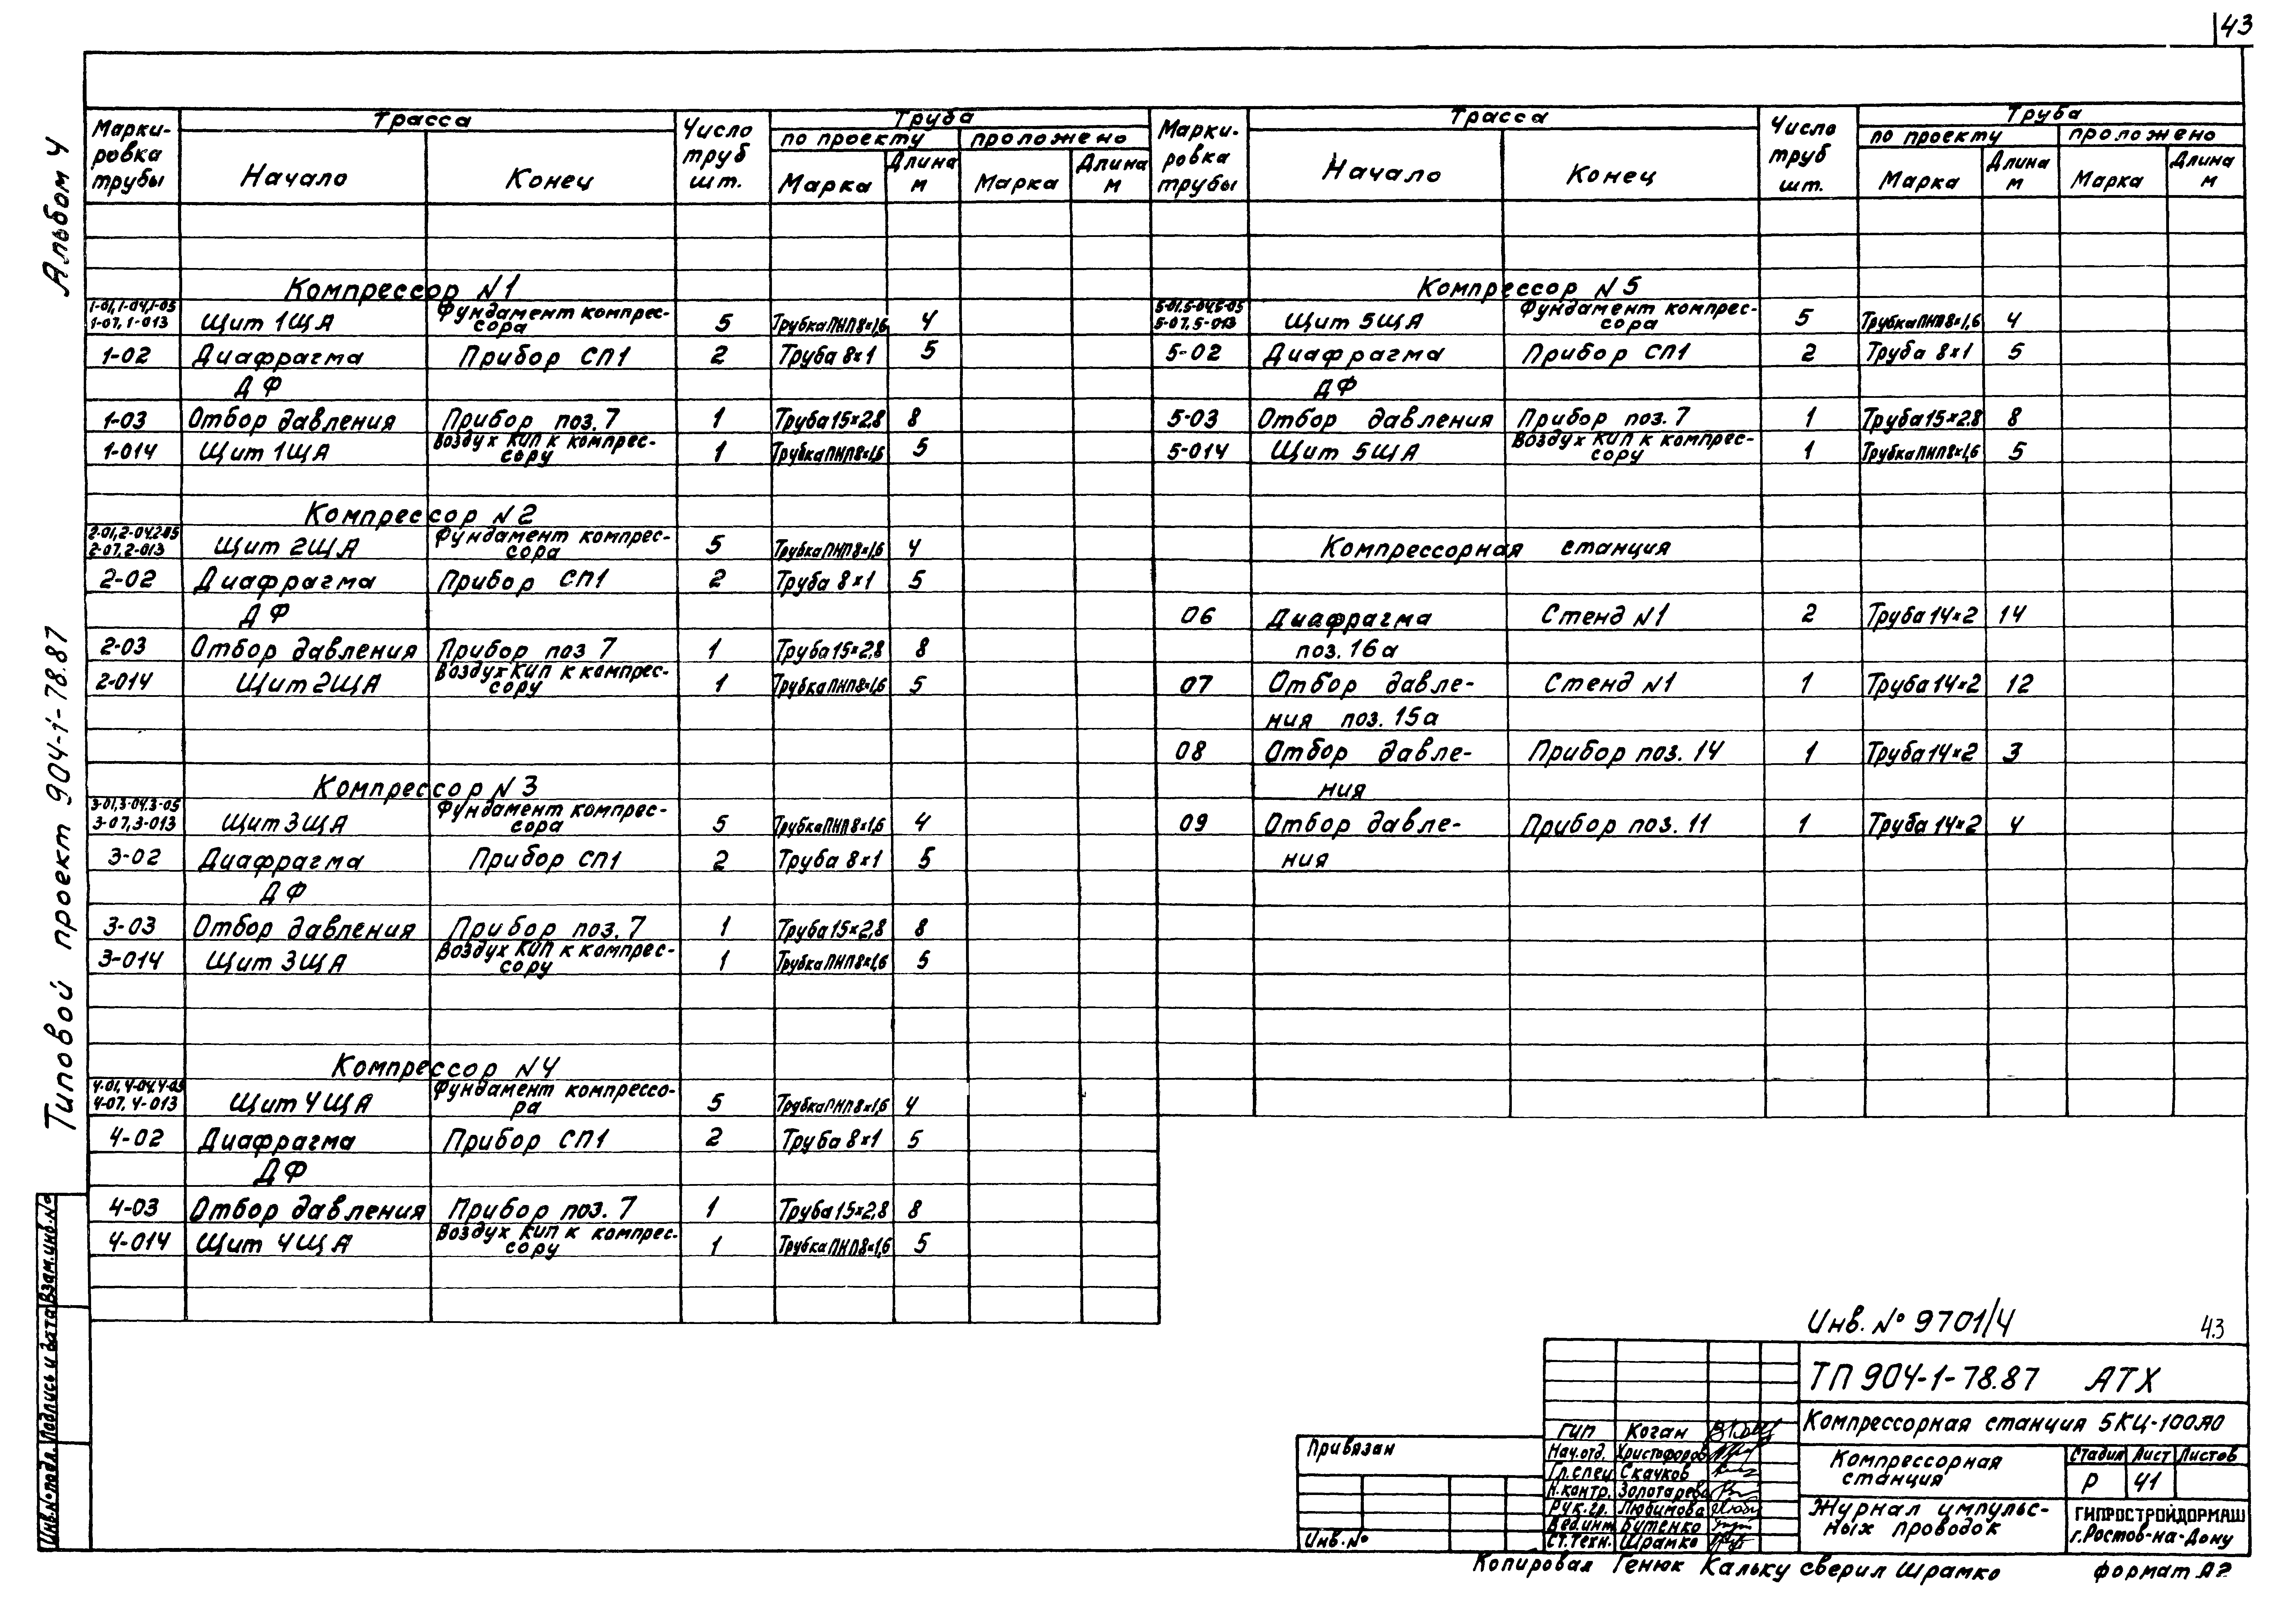 43
Альбом 4
Типовой проект 904-1-78.87
Марки-ровка трубы | Трасса | Число труб шт. | Труба
Начало | Конец | по проекту | проложено
Марка | Длина м | Марка | Длина м
Компрессор N1
1-01, 1-04, 1-05 1-07, 1-013 | Щит 1ЩА | Фундамент компрес-сора | 5 | Трубка ПНП 8×1,6 | 4
1-02 | Диафрагма | Прибор СП1 | 2 | Труба 8×1 | 5
ДФ
1-03 | Отбор давления | Прибор поз. 7 | 1 | Труба 15×2,8 | 8
1-014 | Щит 1ЩА | Воздух КИП к компрес-сору | 1 | Трубка ПНП 8×1,6 | 5
Компрессор N2
2-01, 2-04, 2-05 2-07, 2-013 | Щит 2ЩА | Фундамент компрес-сора | 5 | Трубка ПНП 8×1,6 | 4
2-02 | Диафрагма | Прибор СП1 | 2 | Труба 8×1 | 5
ДФ
2-03 | Отбор давления | Прибор поз 7 | 1 | Труба 15×2,8 | 8
2-014 | Щит 2ЩА | Воздух КИП к компрес-сору | 1 | Трубка ПНП 8×1,6 | 5
Компрессор N3
3-01, 3-04, 3-05 3-07, 3-013 | Щит 3ЩА | Фундамент компрес-сора | 5 | Трубка ПНП 8×1,6 | 4
3-02 | Диафрагма | Прибор СП1 | 2 | Труба 8×1 | 5
ДФ
3-03 | Отбор давления | Прибор поз. 7 | 1 | Труба 15×2,8 | 8
3-014 | Щит 3ЩА | Воздух КИП к компрес-сору | 1 | Трубка ПНП 8×1,6 | 5
Компрессор N4
4-01, 4-04, 4-05 4-07, 4-013 | Щит 4ЩА | Фундамент компрессо-ра | 5 | Трубка ПНП 8×1,6 | 4
4-02 | Диафрагма | Прибор СП1 | 2 | Труба 8×1 | 5
ДФ
4-03 | Отбор давления | Прибор поз. 7 | 1 | Труба 15×2,8 | 8
4-014 | Щит 4ЩА | Воздух КИП к компрес-сору | 1 | Трубка ПНП 8×1,6 | 5
Марки-ровка трубы | Трасса | Число труб шт. | Труба
Начало | Конец | по проекту | проложено
Марка | Длина м | Марка | Длина м
Компрессор N5
5-01, 5-04, 5-05 5-07, 5-013 | Щит 5ЩА | Фундамент компрес-сора | 5 | Трубка ПНП 8×1,6 | 4
5-02 | Диафрагма | Прибор СП1 | 2 | Труба 8×1 | 5
ДФ
5-03 | Отбор давления | Прибор поз. 7 | 1 | Труба 15×2.8 | 8
5-014 | Щит 5ЩА | Воздух КИП к компрес-сору | 1 | Трубка ПНП 8×1,6 | 5
Компрессорная станция
06 | Диафрагма | Стенд N1 | 2 | Труба 14×2 | 14
поз. 16а
07 | Отбор давле- | Стенд N1 | 1 | Труба 14×2 | 12
ния поз. 15а
08 | Отбор давле- | Прибор поз. 14 | 1 | Труба 14×2 | 3
ния
09 | Отбор давле- | Прибор поз. 11 | 1 | Труба 14×2 | 4
ния
Инв. № 9701/4
43
ТП 904-1-78.87 АТХ
Компрессорная станция 5КЦ-100А0
Компрессорная
станция
Стадия | Лист | Листов
Р | 41
Журнал импульс-
ных проводок
ГИПРОСТРОЙДОРМАШ
г.Ростов-на-Дону
ГИП Коган
Нач.отд. Христофоров
Гл.спец Скачков
Н.контр. Золотарева
Рук.гр. Любимова
Вед.инж Бутенко
Ст.техн. Шрамко
Привязан
Инв.№
Взам.инв.№
Подпись и дата
Инв.№подл.
Копировал Генюк Кальку сверил Шрамко
формат А2